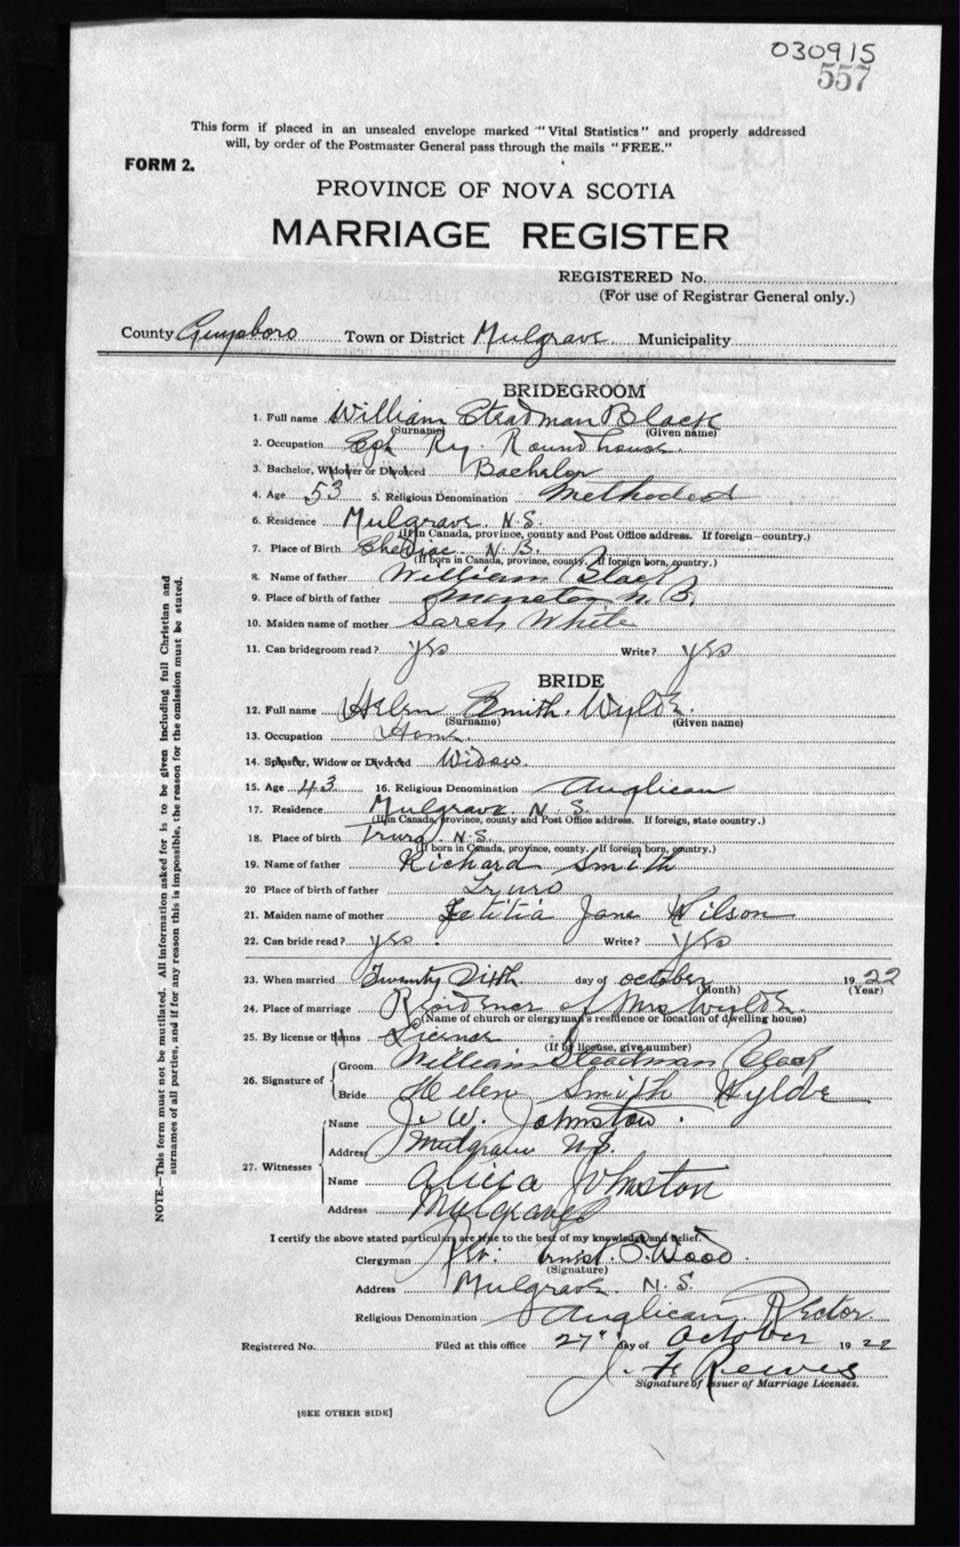 030915
557
This form if placed in an unsealed envelope marked "Vital Statistics" and properly addressed
will, by order of the Postmaster General pass through the mails "FREE."
FORM 2.
PROVINCE OF NOVA SCOTIA
MARRIAGE REGISTER
REGISTERED No.
(For use of Registrar General only.)
County Guysboro Town or District Mulgrave Municipality
BRIDEGROOM
1. Full name William Steadman Black
(Surname) (Given name)
2. Occupation Ry. Round house.
3. Bachelor, Widower or Divorced Bachelor
4. Age 53 5. Religious Denomination Methodist
6. Residence Mulgrave. N.S.
(If in Canada, province, county and Post Office address. If foreign—country.)
7. Place of Birth Shediac N.B.
(If born in Canada, province, county. If foreign born, country.)
8. Name of father William Black
9. Place of birth of father Moncton N.B.
10. Maiden name of mother Sarah White
11. Can bridegroom read? yes Write? yes
BRIDE
12. Full name Helen Smith. Wylde.
(Surname) (Given name)
13. Occupation Home.
14. Spinster, Widow or Divorced Widow.
15. Age 43 16. Religious Denomination Anglican
17. Residence Mulgrave. N.S.
(If in Canada, province, county and Post Office address. If foreign, state country.)
18. Place of birth Truro. N.S.
(If born in Canada, province, county. If foreign born, country.)
19. Name of father Richard Smith
20 Place of birth of father Truro
21. Maiden name of mother Letitia Jane Wilson
22. Can bride read? yes. Write? yes
23. When married Twenty Sixth day of October 1922
(Month) (Year)
24. Place of marriage Residence of Mrs Wylde.
(Name of church or clergyman's residence or location of dwelling house)
25. By license or banns License
(If by license, give number)
26. Signature of
Groom William Steadman Black
Bride Helen Smith Wylde
27. Witnesses
Name J. W. Johnston.
Address Mulgrave N.S.
Name Alicia Johnston
Address Mulgrave
I certify the above stated particulars are true to the best of my knowledge and belief.
Clergyman Rev. Ernest. P. Wood.
(Signature)
Address Mulgrave. N.S.
Religious Denomination Anglican. Rector.
Registered No. Filed at this office 27" day of October 1922
J. F. Reeves
Signature of Issuer of Marriage Licenses.
[SEE OTHER SIDE]
NOTE.—This form must not be mutilated. All information asked for is to be given including full Christian and
surnames of all parties, and if for any reason this is impossible, the reason for the omission must be stated.